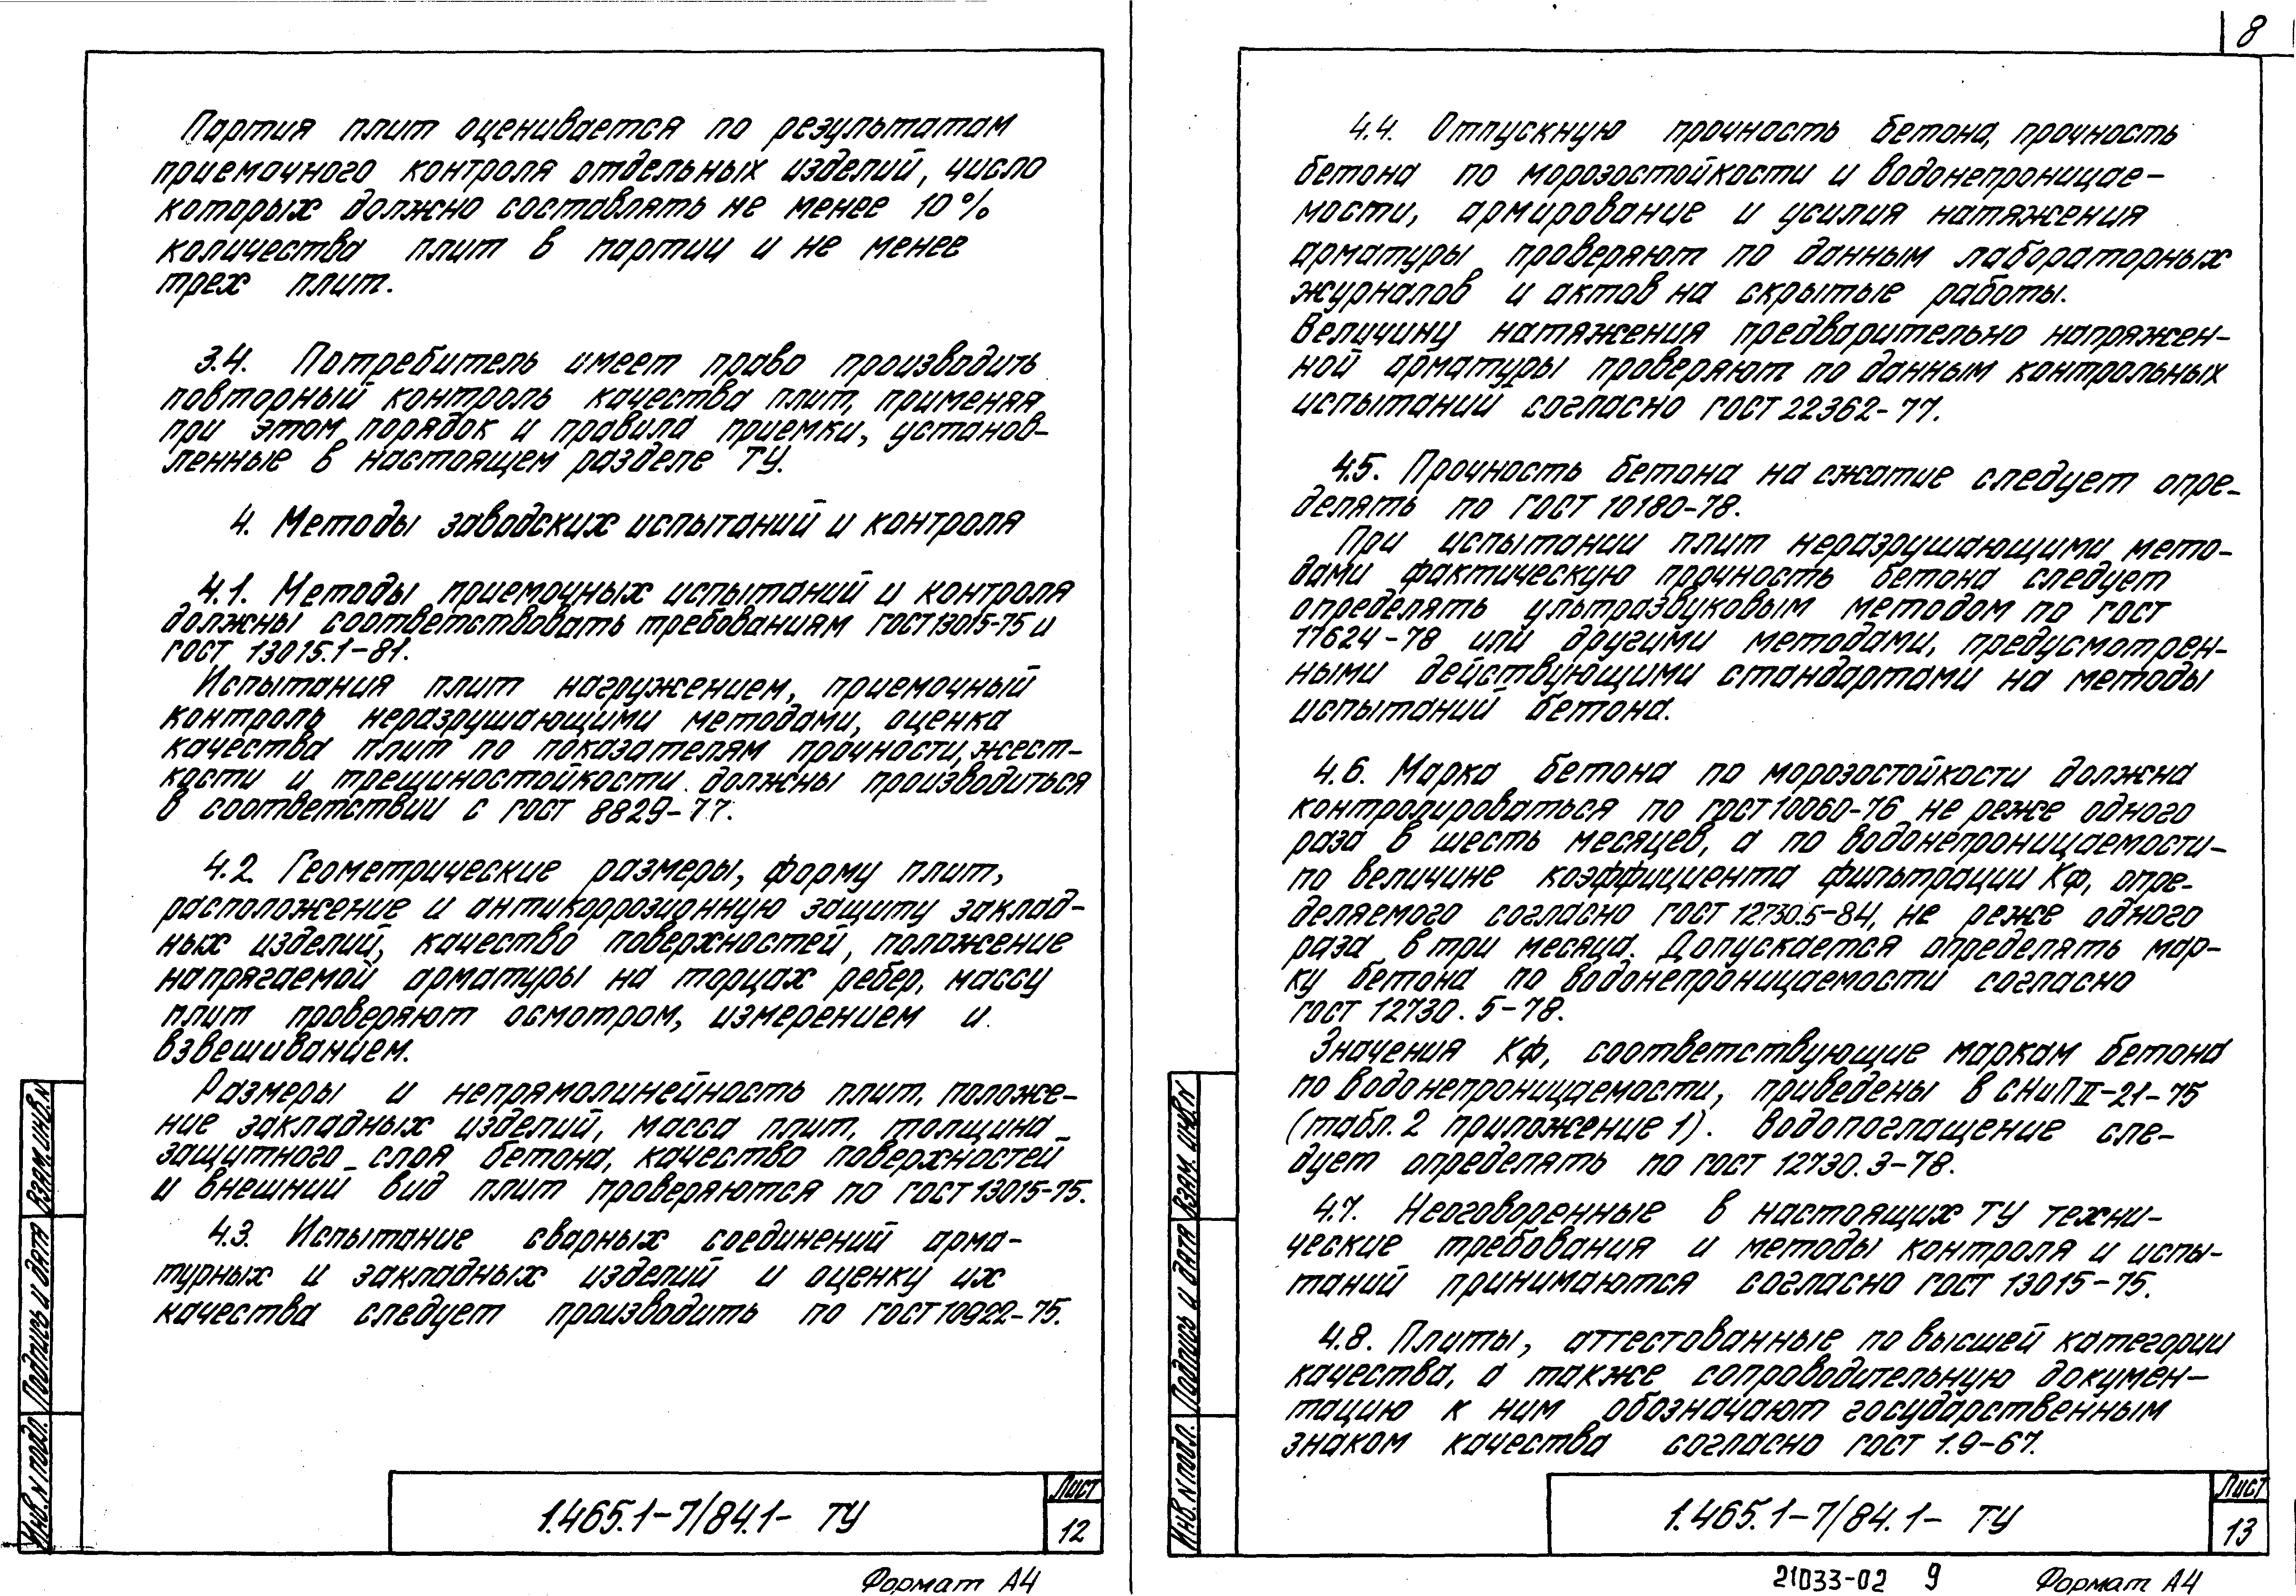 Партия плит оценивается по результатам
приемочного контроля отдельных изделий, число
которых должно составлять не менее 10%
количества плит в партии и не менее
трех плит.
3.4. Потребитель имеет право производить
повторный контроль качества плит, применяя
при этом порядок и правила приемки, установ-
ленные в настоящем разделе ТУ.
4. Методы заводских испытаний и контроля
4.1. Методы приемочных испытаний и контроля
должны соответствовать требованиям ГОСТ 13015-75 и
ГОСТ 13015.1-81.
Испытания плит нагружением, приемочный
контроль неразрушающими методами, оценка
качества плит по показателям прочности, жест-
кости и трещиностойкости должны производиться
в соответствии с ГОСТ 8829-77.
4.2. Геометрические размеры, форму плит,
расположение и антикоррозионную защиту заклад-
ных изделий, качество поверхностей, положение
напрягаемой арматуры на торцах ребер, массу
плит проверяют осмотром, измерением и
взвешиванием.
Размеры и непрямолинейность плит, положе-
ние закладных изделий, масса плит, толщина
защитного слоя бетона, качество поверхностей
и внешний вид плит проверяются по ГОСТ 13015-75.
4.3. Испытание сварных соединений арма-
турных и закладных изделий и оценку их
качества следует производить по ГОСТ 10922-75.
Инв. N подл. Подпись и дата Взам. инв. N
1.465.1-7/84.1- ТУ
Лист
12
Формат А4
8
4.4. Отпускную прочность бетона, прочность
бетона по морозостойкости и водонепроницае-
мости, армирование и усилия натяжения
арматуры проверяют по данным лабораторных
журналов и актов на скрытые работы.
Величину натяжения предварительно напряжен-
ной арматуры проверяют по данным контрольных
испытаний согласно ГОСТ 22362-77.
4.5. Прочность бетона на сжатие следует опре-
делять по ГОСТ 10180-78.
При испытании плит неразрушающими мето-
дами фактическую прочность бетона следует
определять ультразвуковым методом по ГОСТ
17624-78 или другими методами, предусмотрен-
ными действующими стандартами на методы
испытаний бетона.
4.6. Марка бетона по морозостойкости должна
контролироваться по ГОСТ 10060-76 не реже одного
раза в шесть месяцев, а по водонепроницаемости-
по величине коэффициента фильтрации Кф, опре-
деляемого согласно ГОСТ 12730.5-84, не реже одного
раза в три месяца. Допускается определять мар-
ку бетона по водонепроницаемости согласно
ГОСТ 12730.5-78.
Значения Кф, соответствующие маркам бетона
по водонепроницаемости, приведены в СНиП II-21-75
(табл. 2 приложение 1). Водопоглащение сле-
дует определять по ГОСТ 12730.3-78.
4.7. Неоговоренные в настоящих ТУ техни-
ческие требования и методы контроля и испы-
таний принимаются согласно ГОСТ 13015-75.
4.8. Плиты, аттестованные по высшей категории
качества, а также сопроводительную докумен-
тацию к ним обозначают государственным
знаком качества согласно ГОСТ 1.9-67.
Инв. N подл. Подпись и дата Взам. инв. N
1.465.1-7/84.1- ТУ
Лист
13
21033-02 9 Формат А4